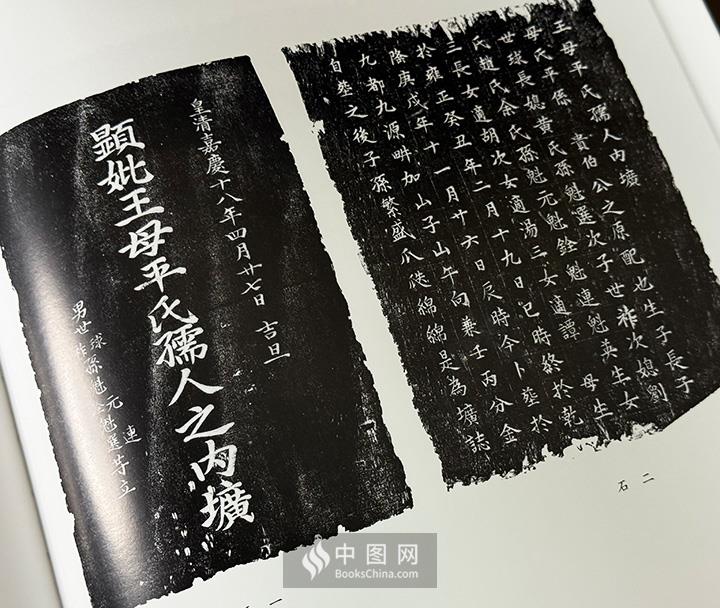 皇清嘉慶十八年四月廿七日 吉旦
顯妣王母平氏孺人之內壙
男世球祚孫魁元魁選連等立
一
王母平氏孺人內壙
母氏平係 貴伯公之原配也生子長子
世球長媳黃氏孫魁元魁選次子世祚次媳劉
氏趙氏余氏孫魁銓魁連魁英生女
三長女適胡次女適湯三女適譚 母生
於雍正癸丑年二月十九日巳時終於乾
隆庚戌年十一月廿六日辰時今卜葬於
九都九源畔加山子山午向兼壬丙分金
自葬之後子孫繁盛瓜瓞綿綿是為壙誌
石二
中图网
BooksChina.com